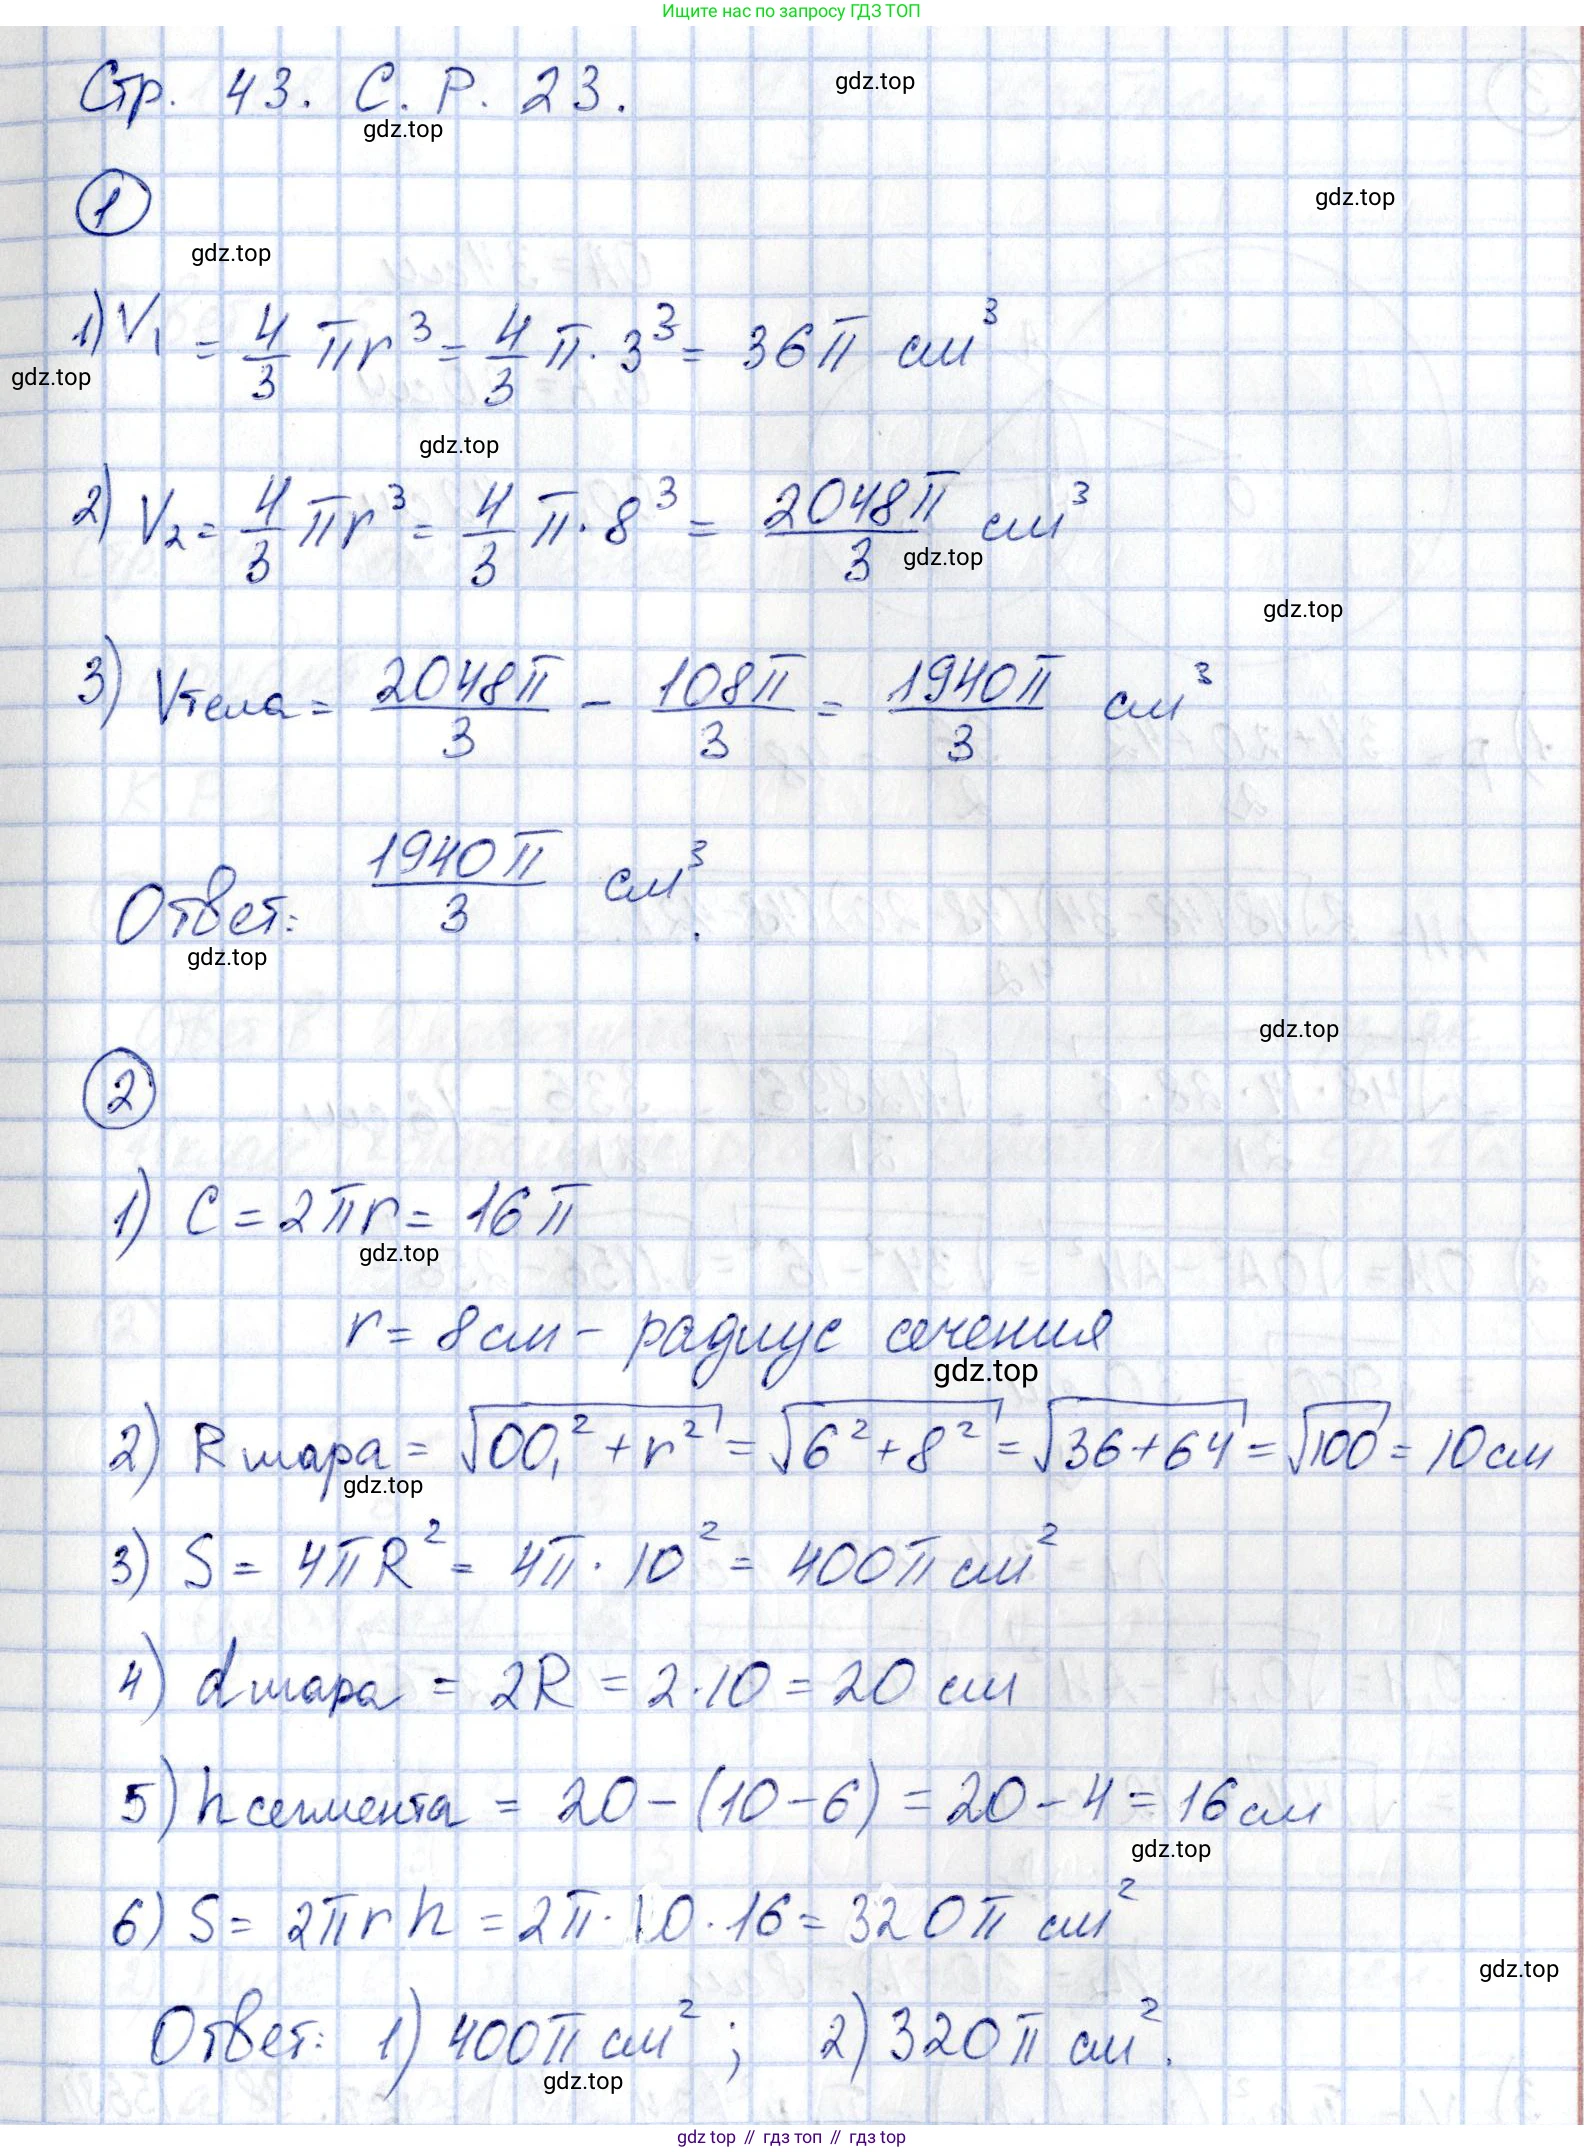 Ищите нас по запросу ГДЗ ТОП
Стр. 43. С. Р. 23.
gdz.top
gdz.top
1
gdz.top
gdz.top
1) V₁ = 4/3 πr³ = 4/3 π · 3³ = 36π см³
gdz.top
gdz.top
2) V₂ = 4/3 πr³ = 4/3 π · 8³ = 2048π/3 см³
gdz.top
gdz.top
3) Vтела = 2048π/3 - 108π/3 = 1940π/3 см³
Ответ: 1940π/3 см³.
gdz.top
gdz.top
2
1) C = 2πr = 16π
gdz.top
r = 8 см - радиус сечения
gdz.top
2) R шара = √(OO₁² + r²) = √(6² + 8²) = √(36 + 64) = √100 = 10 см
gdz.top
3) S = 4πR² = 4π · 10² = 400π см²
4) d шара = 2R = 2 · 10 = 20 см
5) h сегмента = 20 - (10 - 6) = 20 - 4 = 16 см
gdz.top
6) S = 2πrh = 2π · 10 · 16 = 320π см²
gdz.top
Ответ: 1) 400π см²; 2) 320π см².
gdz.top
gdz top // гдз топ // гдз top